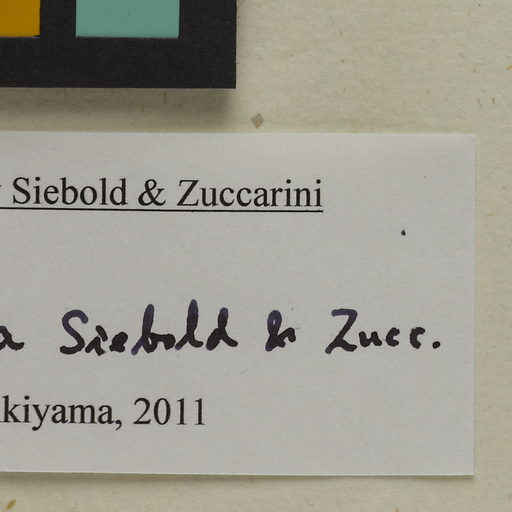 Siebold & Zuccarini
a Siebold & Zucc.
kiyama, 2011